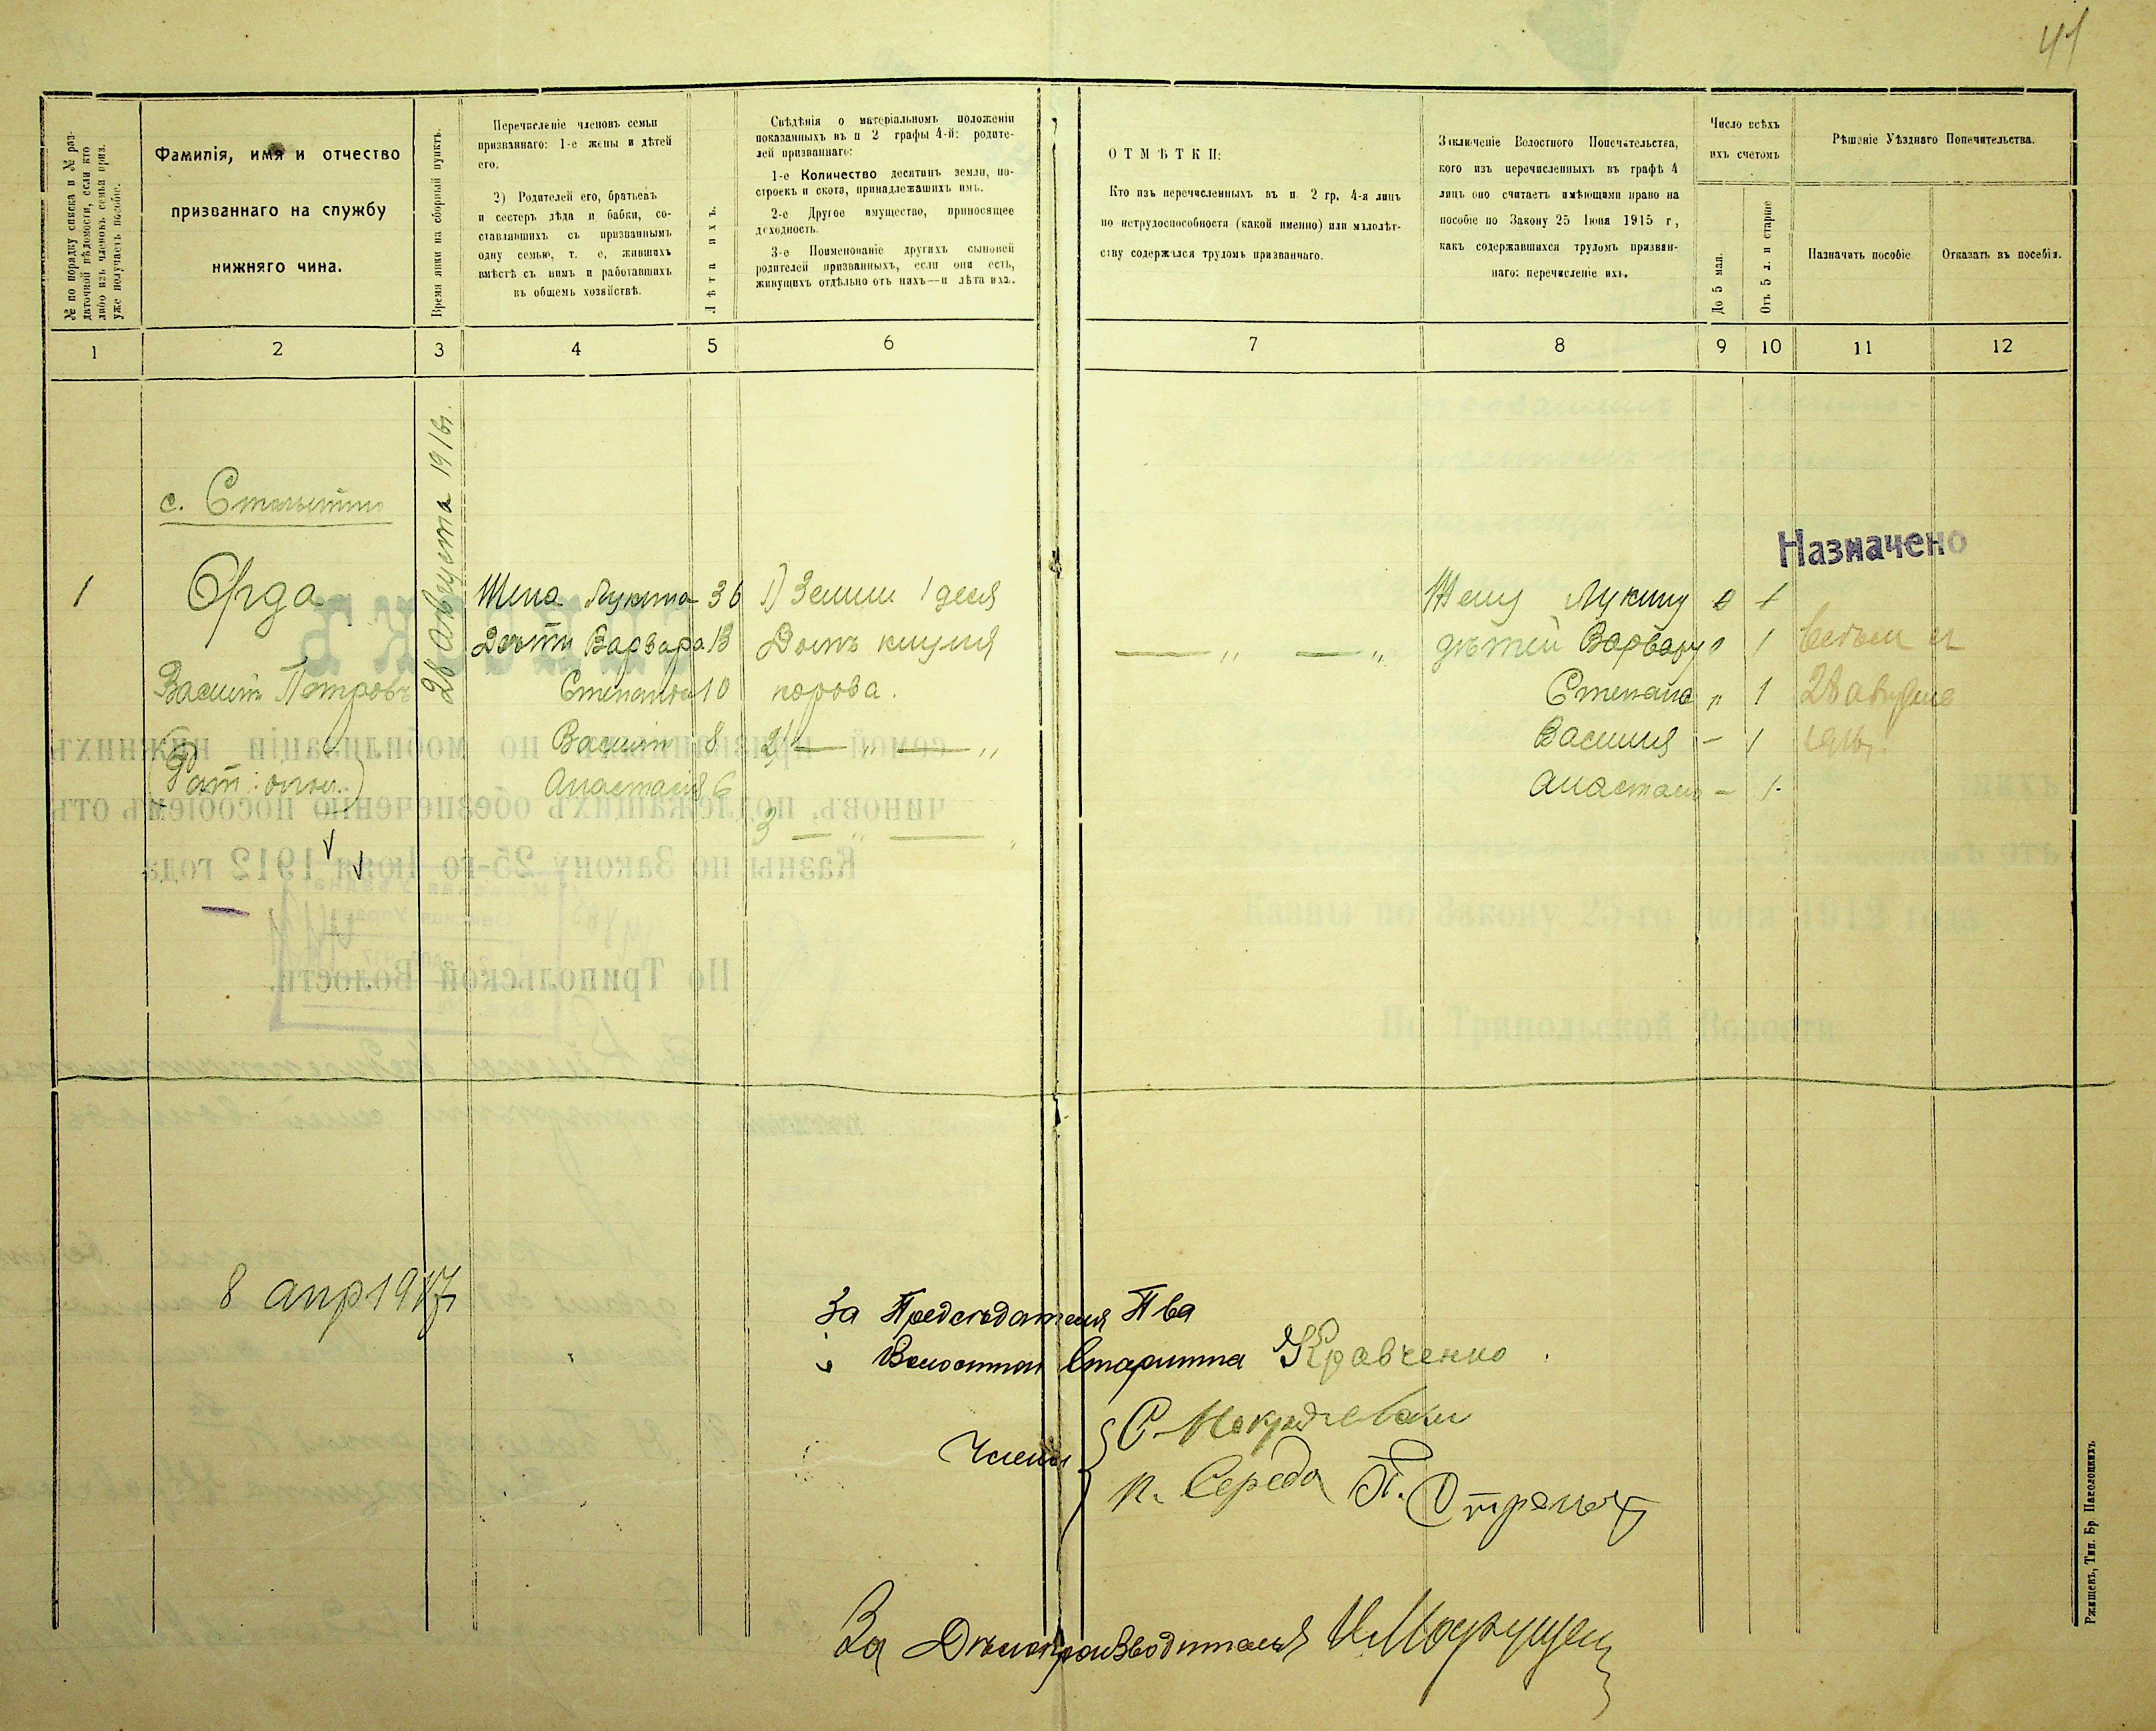 41
№ по порядку списка и № раз-
даточной вѣдомости, если кто
либо изъ членовъ семьи приз.
уже получаетъ пособіе.
Фамилія, имя и отчество
призваннаго на службу
нижняго чина.
Время явки на сборный пунктъ.
Перечисленіе членовъ семьи
призваннаго: 1-е жены и дѣтей
его.
2) Родителей его, братьевъ
и сестеръ дѣда и бабки, со-
ставлявшихъ съ призваннымъ
одну семью, т. е, жившихъ
вмѣстѣ съ нимъ и работавшихъ
въ общемъ хозяйствѣ.
Лѣта ихъ.
Свѣдѣнія о матеріальномъ положеніи
показанныхъ въ п 2 графы 4-й: родите-
лей призваннаго:
1-е Количество десятинъ земли, по-
строекъ и скота, принадлежашихъ имъ.
2-е Другое имущество, приносящее
доходность.
3-е Поименованіе другихъ сыновей
родителей призванныхъ, если они есть,
живущихъ отдѣльно отъ нахъ—и лѣта ихъ.
ОТМѢТКИ:
Кто изъ перечисленныхъ въ п. 2 гр. 4-я лицъ
по нетрудоспособности (какой именно) или малолѣт-
ству содержался трудомъ призваннаго.
Заключеніе Волостного Попечительства,
кого изъ перечисленныхъ въ графѣ 4
лицъ оно считаетъ имѣющими право на
пособіе по Закону 25 Іюня 1915 г,
какъ содержавшихся трудомъ призван-
наго: перечисленіе ихъ.
Число всѣхъ
ихъ счетомъ
До 5 мая.
Отъ 5 л. и старше
Рѣшеніе Уѣзднаго Попечительства.
Назначить пособіе
Отказать въ пособіи.
1 2 3 4 5 6 7 8 9 10 11 12
28 Августа 1916г.
Назначено
1 Орда Жена Лукина 36 1) Земли 1 деся Жену Лукину 1
Дѣти Варвара 13 Домъ клуня — „ — „ дѣтей Варвару „ 1
Василій Петровъ Степанъ 10 корова. Степана „ 1 28 августа
Василій 8 2) — „ — „ Василія — 1 1916г.
(Рат: опол.) Анастасія 6 Анастасію — 1
3 — „ —
8 апр 1917г
За Предсѣдателя П-ва
Волостной Старшина Кравченко
Члены
П. Середа
За Дѣлопроизводителя
Ржищевъ, Тип. Бр Паволоцкихъ